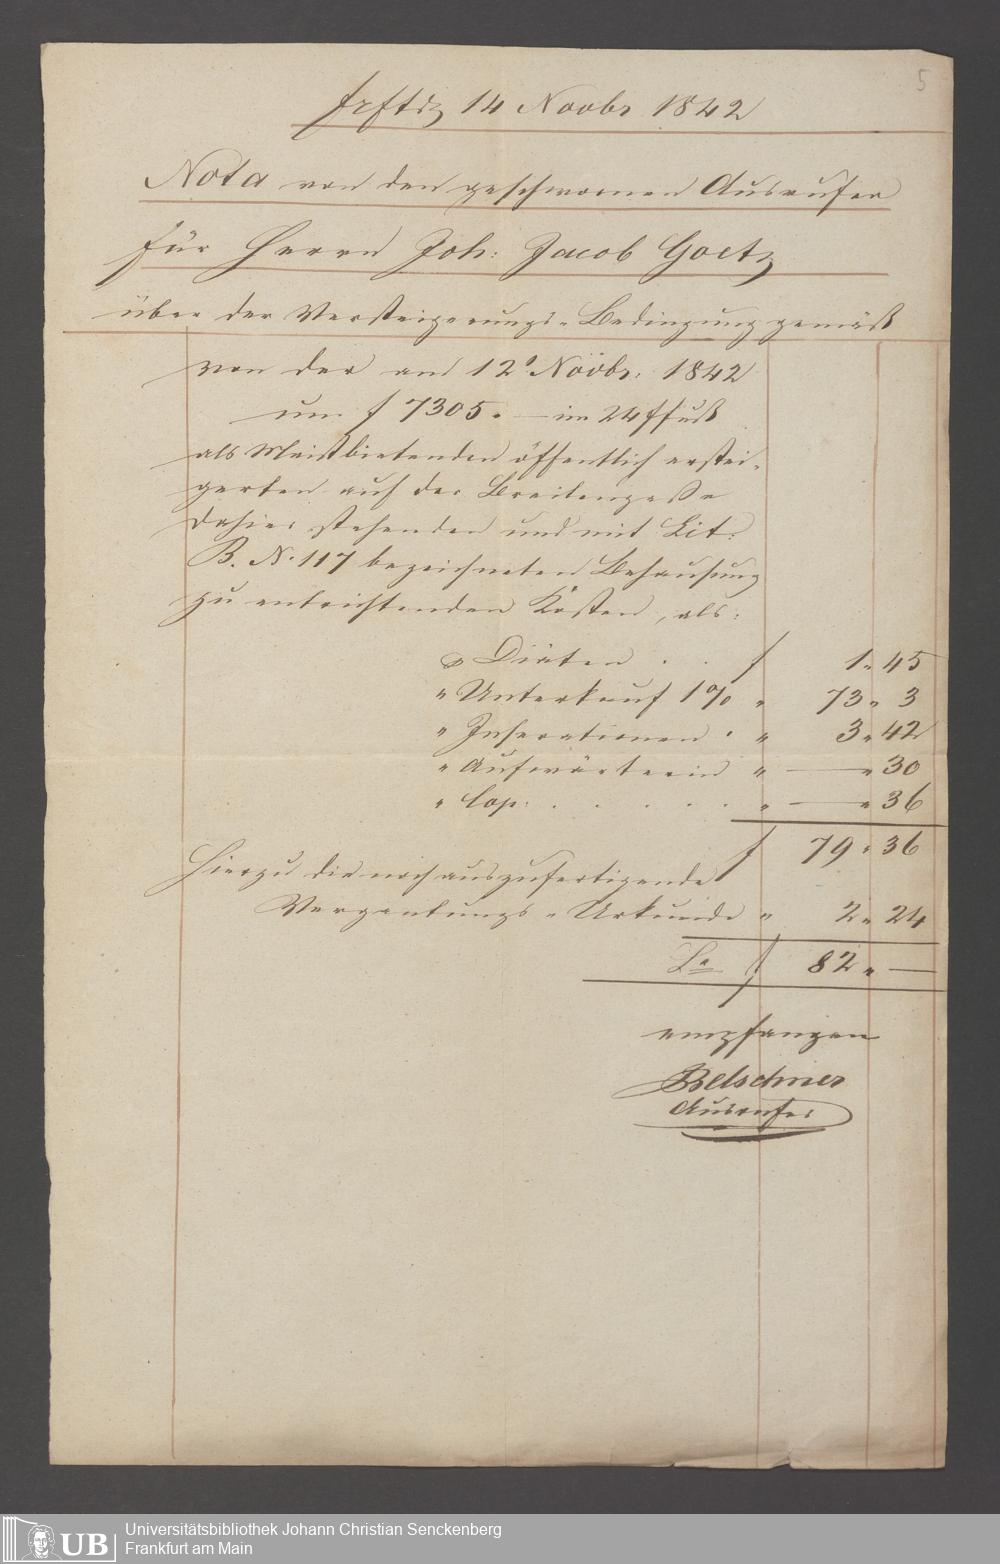 5
Frftdz 14 Novbr 1842
Nota von den geschwornen Ausrufer
für Herrn Joh: Jacob Goetz
über der Versteigerungs-Bedingung gemäß
von der am 12. Novbr: 1842
um f 7305. — im 24 f fuß
als Meistbietenden öffentlich erstei-
gerten auf der Breitengaße
dahier stehenden und mit Lit:
B. N. 117 bezeichneten Behausung
zu entrichtenden Kosten, als:
Diäten . . f 1 " 45
" Unterkauf 1 % " 73 " 3
" Inserationen . " 3 " 42
" Aufwärterin " — " 30
" Cop: . . . . . . " — " 36
f 79 " 36
Hierzu die noch auszufertigende
Vergantungs-Urkunde " 2 " 24
Sa f 82 " —
empfangen
Belschner
Ausrufer
UB
Universitätsbibliothek Johann Christian Senckenberg
Frankfurt am Main